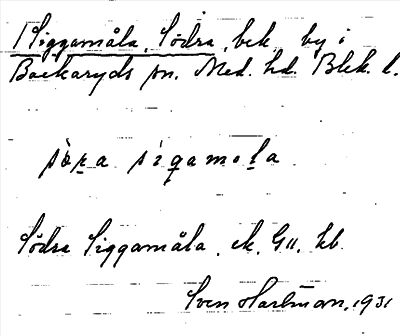 Siggamåla, Södra, bek. by i
Backaryds sn. Med. hd. Blek. l.
sö̀ra sigamåla
Södra Siggamåla, ek. G11. kb.
Sven Hartman, 1931